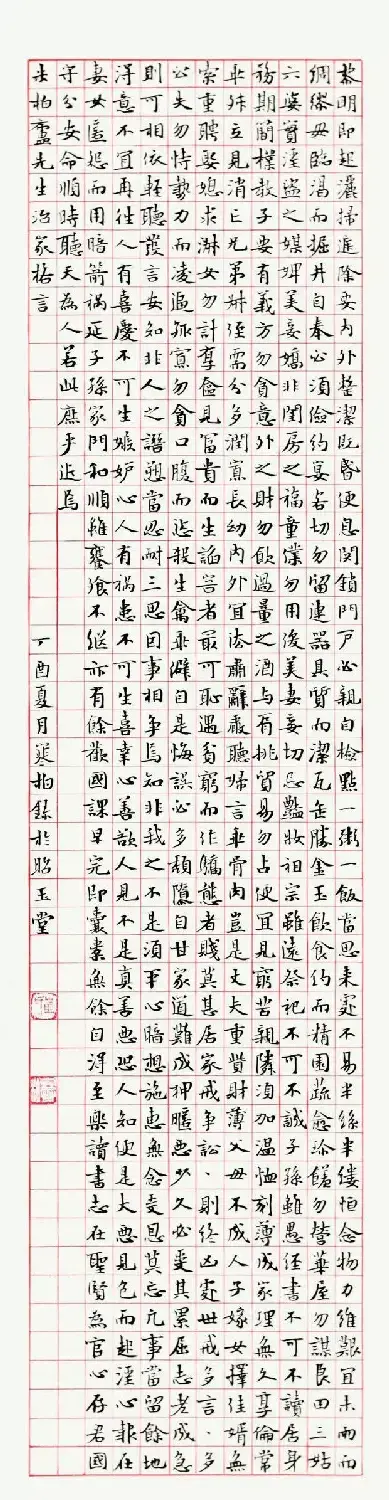 黎明即起灑掃庭除要內外整潔既昏便息関鎖門戶必親自檢點一粥一飯當思來處不易半絲半縷恒念物力維艱宜未雨而
綢繆毋臨渴而掘井自奉必須儉約宴客切勿留連器具質而潔瓦缶勝金玉飲食約而精園蔬愈珍饈勿營華屋勿謀良田三姑
六婆實淫盜之媒婢美妾嬌非閨房之福童僕勿用俊美妻妾切忌豔妝祖宗雖遠祭祀不可不誠子孫雖愚經書不可不讀居身
務期簡樸教子要有義方勿貪意外之財勿飲過量之酒与肩挑貿易勿占便宜見窮苦親隣須加溫恤刻薄成家理無久享倫常
乖舛立見消亡兄弟姊侄需分多潤寡長幼內外宜法肅辭嚴聽婦言乖骨肉豈是丈夫重貲財薄父母不成人子嫁女擇佳婿無
索重聘娶媳求淑女勿計奩見富貴而生諂容者最可恥遇貧窮而作驕態者賤莫甚居家戒爭訟、則終凶處世戒多言、多
必失勿恃勢力而凌逼孤寡勿貪口腹而恣殺生禽乖僻自是悔誤必多頹隳自甘家道難成狎暱惡少久必受其累屈志老成急
則可相依輕聽發言安知非人之譖愬當忍耐三思因事相爭焉知非我之不是須平心暗想施惠無念受恩莫忘凡事當留餘地
得意不宜再往人有喜慶不可生嫉妒心人有禍患不可生喜幸心善欲人見不是真善惡恐人知便是大惡見色而起淫心報在
妻女匿怨而用暗箭禍延子孫家門和順雖饔飧不繼亦有餘歡國課早完即囊橐無餘自得至樂讀書志在聖賢為官心存君國
守分安命順時聽天為人若此庶乎近焉
朱柏廬先生治家格言
丁酉夏月寒柏錄於昭玉堂